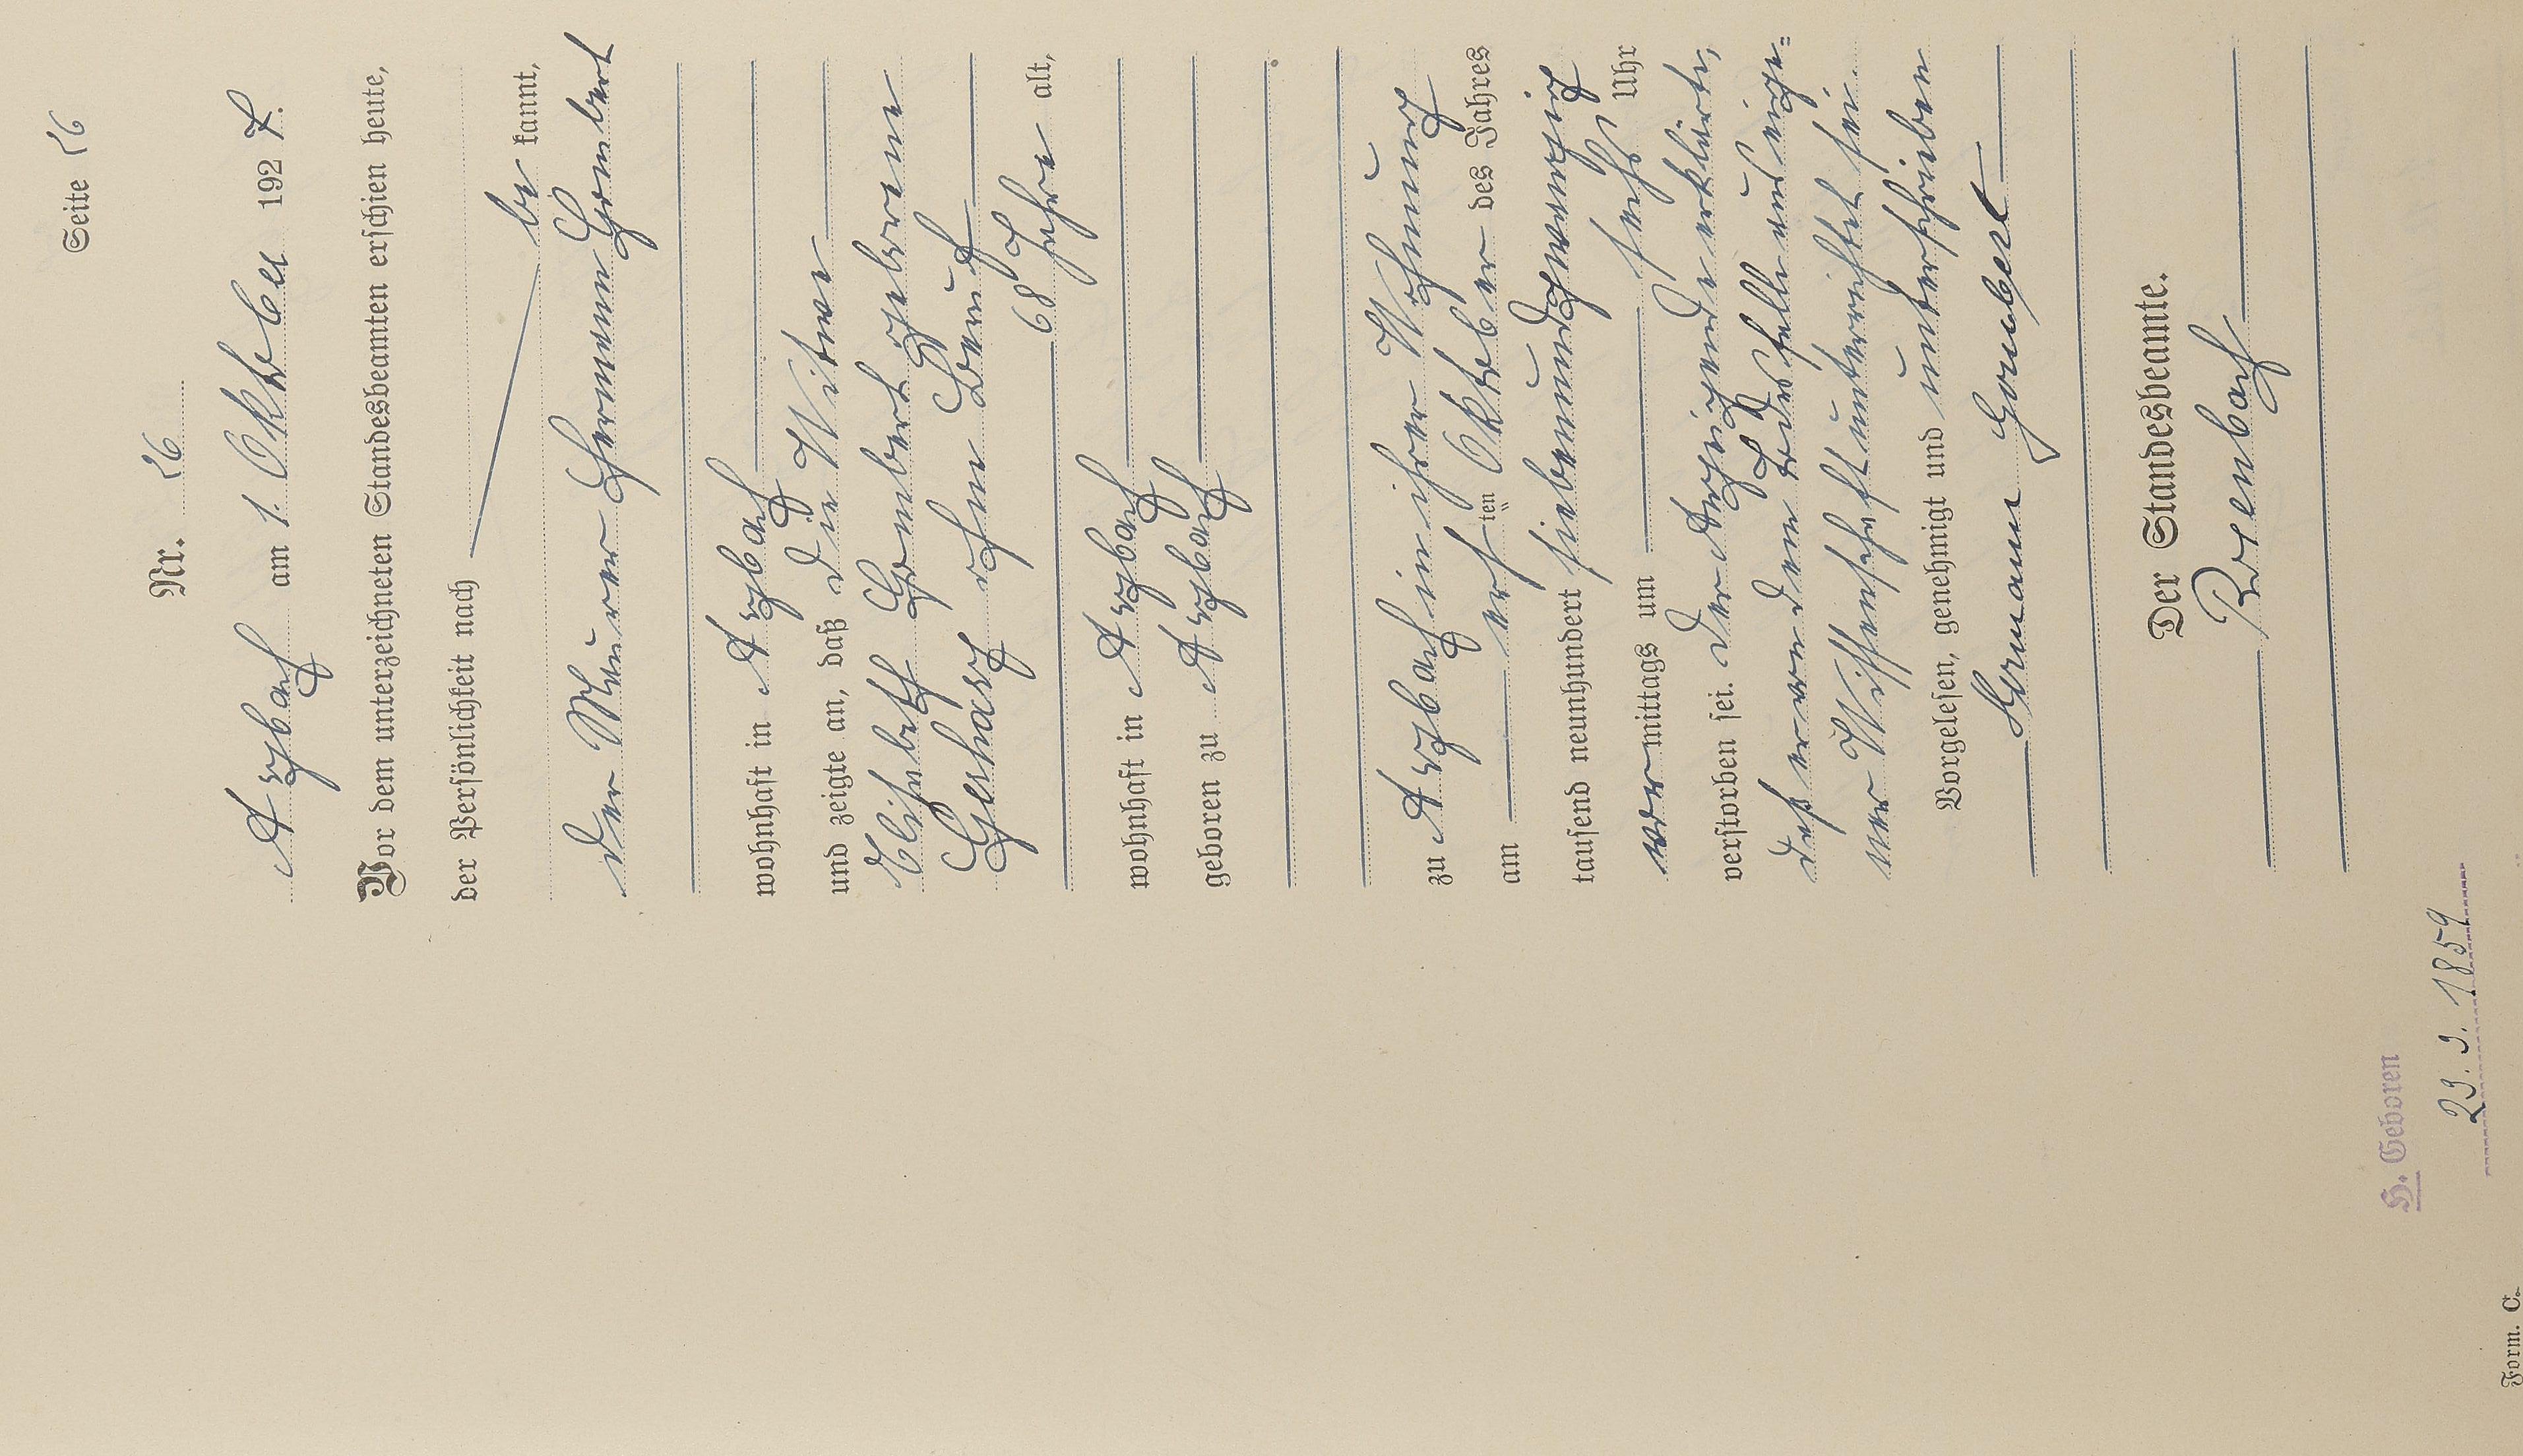 Seite 26
Nr. 26
Arzbach am 1. Oktober 1927.
Vor dem unterzeichneten Standesbeamten erschien heute,
der Persönlichkeit nach
be kannt,
der Maurer Hermann Gombert
wohnhaft in Arzbach
und zeigte an, daß die Witwe
Elisabeth Gombert geborene
Gerharz ohne Beruf
68 Jahre alt,
wohnhaft in Arzbach
geboren zu Arzbach
zu Arzbach in ihrer Wohnung
am ersten Oktober des Jahres
tausend neunhundert siebenundzwanzig
vormittags um sechs Uhr
verstorben sei. Der Anzeigende erklärte,
daß er von dem Todesfalle aus eige=
ner Wissenschaft unterrichtet sei.
Vorgelesen, genehmigt und unterschrieben
Hermann Gombert
Der Standesbeamte.
H. Geboren
23. 3. 1859
Form. C.